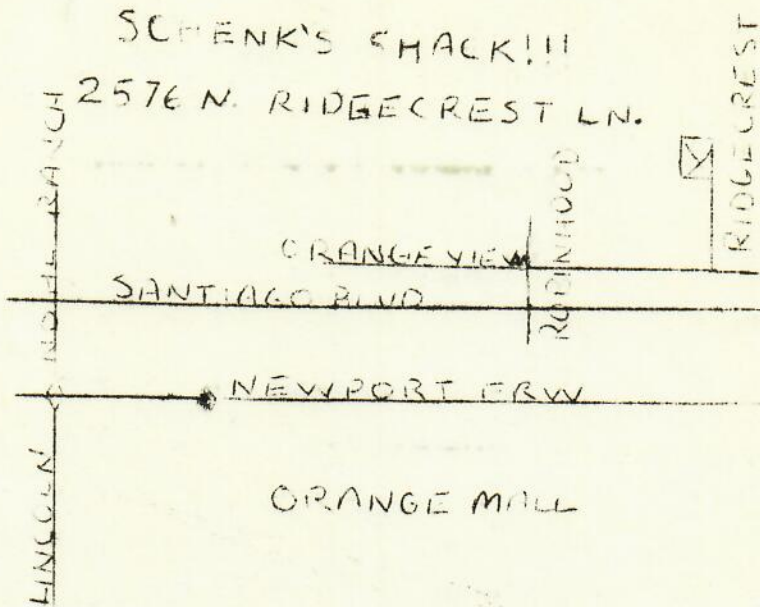 SCHENK'S SHACK!!!
2576 N. RIDGECREST LN.
RANCH
RIDGECREST
ROBINHOOD
ORANGEVIEW
SANTIAGO BLVD
NEWPORT FRW
LINCOLN
ORANGE MALL